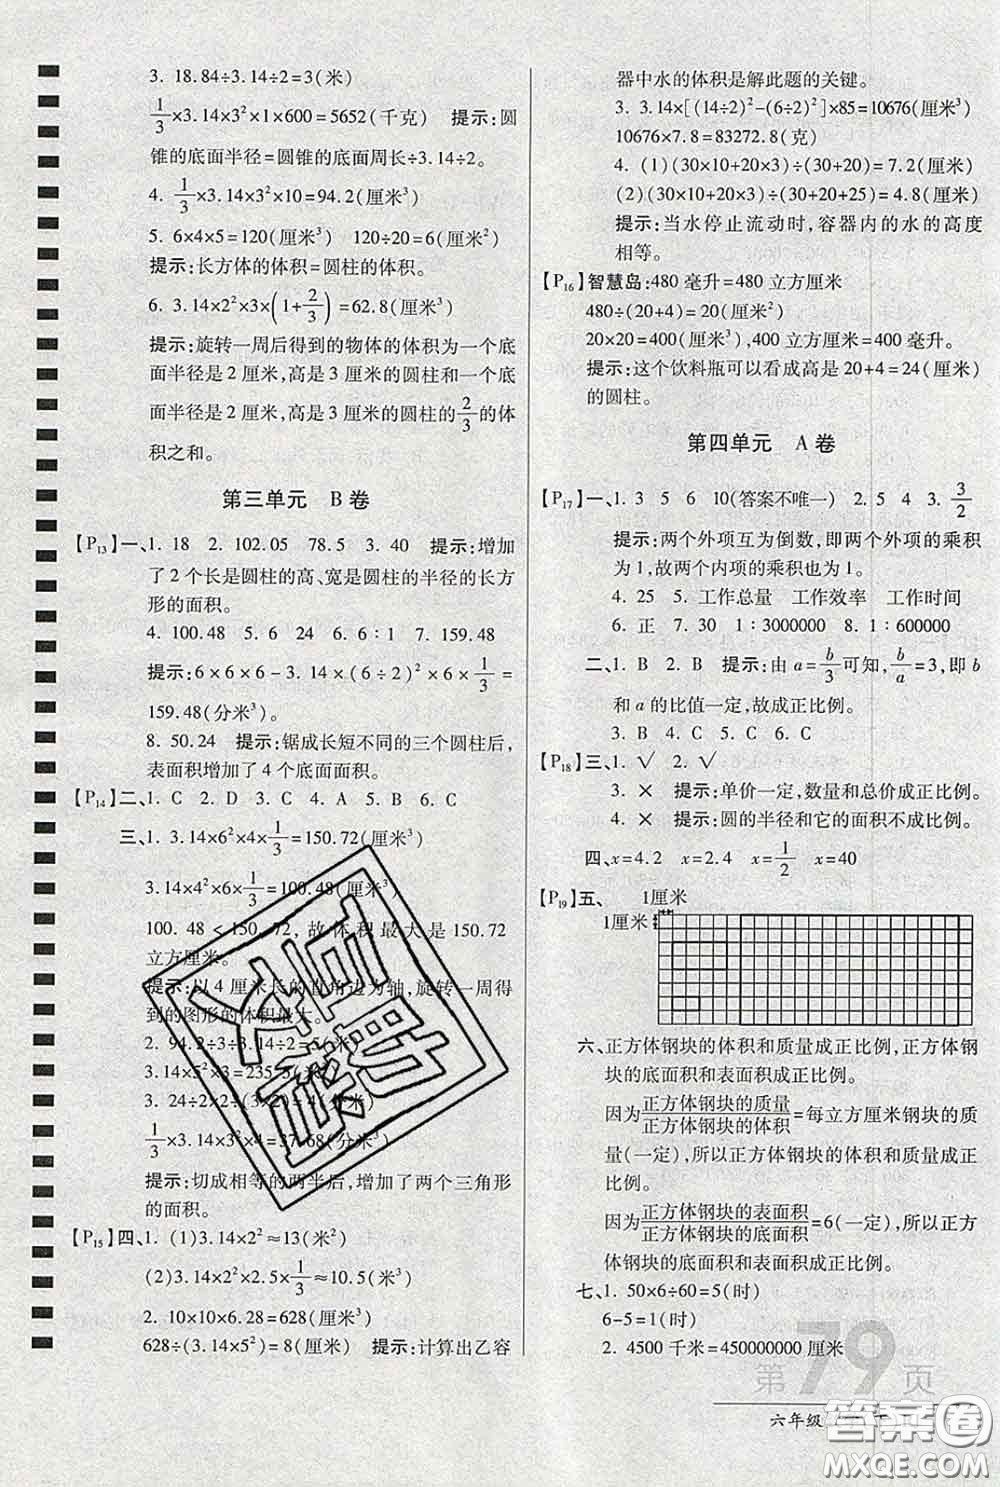 3. 18.84÷3.14÷2=3(米)
1/3×3.14×3²×1×600=5652(千克) 提示:圆
锥的底面半径=圆锥的底面周长÷3.14÷2。
4. 1/3×3.14×3²×10=94.2(厘米³)
5. 6×4×5=120(厘米³) 120÷20=6(厘米²)
提示:长方体的体积=圆柱的体积。
6. 3.14×2²×3×(1+2/3)=62.8(厘米³)
提示:旋转一周后得到的物体的体积为一个底
面半径是2厘米,高是3厘米的圆柱和一个底
面半径是2厘米,高是3厘米的圆柱的2/3的体
积之和。
第三单元 B卷
【P13】一、1. 18 2. 102.05 78.5 3. 40 提示:增加
了2个长是圆柱的高、宽是圆柱的半径的长方
形的面积。
4. 100.48 5. 6 24 6. 6∶1 7. 159.48
提示:6×6×6-3.14×(6÷2)²×6×1/3=
159.48(分米³)。
8. 50.24 提示:锯成长短不同的三个圆柱后,
表面积增加了4个底面面积。
【P14】二、1. C 2. D 3. C 4. A 5. B 6. C
三、1. 3.14×6²×4×1/3=150.72(厘米³)
3.14×4²×6×1/3=100.48(厘米³)
100.48<150.72,故体积最大是150.72
立方厘米。
提示:以4厘米长的直角边为轴,旋转一周得
到的图形的体积最大。
2. 94.2÷3÷3.14÷2=5(厘米)
3.14×5²×3=235.5(厘米³)
3. 24÷2×2÷(3×2)=4(分米)
1/3×3.14×3²×4=37.68(分米³)
提示:切成相等的两半后,增加了两个三角形
的面积。
【P15】四、1. (1)3.14×2²≈13(米²)
(2)3.14×2²×2.5×1/3≈10.5(米³)
2. 10×10×6.28=628(厘米³)
628÷(3.14×5²)=8(厘米) 提示:计算出乙容
器中水的体积是解此题的关键。
3. 3.14×[(14÷2)²-(6÷2)²]×85=10676(厘米³)
10676×7.8=83272.8(克)
4. (1)(30×10+20×3)÷(30+20)=7.2(厘米)
(2)(30×10+20×3)÷(30+20+25)=4.8(厘米)
提示:当水停止流动时,容器内的水的高度
相等。
【P16】智慧岛:480毫升=480立方厘米
480÷(20+4)=20(厘米²)
20×20=400(厘米³),400立方厘米=400毫升。
提示:这个饮料瓶可以看成高是20+4=24(厘米)
的圆柱。
第四单元 A卷
【P17】一、1. 3 5 6 10(答案不唯一) 2. 5 4 3. 3/2
提示:两个外项互为倒数,即两个外项的乘积
为1,故两个内项的乘积也为1。
4. 25 5. 工作总量 工作效率 工作时间
6. 正 7. 30 1∶3000000 8. 1∶600000
二、1. B 2. B 提示:由a=b/3可知,b/a=3,即b
和a的比值一定,故成正比例。
3. B 4. C 5. C
【P18】三、1. √ 2. √
3. × 提示:单价一定,数量和总价成正比例。
4. × 提示:圆的半径和它的面积不成比例。
四、x=4.2 x=2.4 x=1/2 x=40
【P19】五、 1厘米
1厘米
六、正方体钢块的体积和质量成正比例,正方体钢
块的底面积和表面积成正比例。
因为正方体钢块的质量/正方体钢块的体积=每立方厘米钢块的质
量(一定),所以正方体钢块的体积和质量成正
比例。
因为正方体钢块的表面积/正方体钢块的底面积=6(一定),所以正方
体钢块的底面积和表面积成正比例。
七、1. 50×6÷60=5(时)
6-5=1(时)
2. 4500千米=450000000厘米
第79页
六年级
答案卷
MXQE.COM